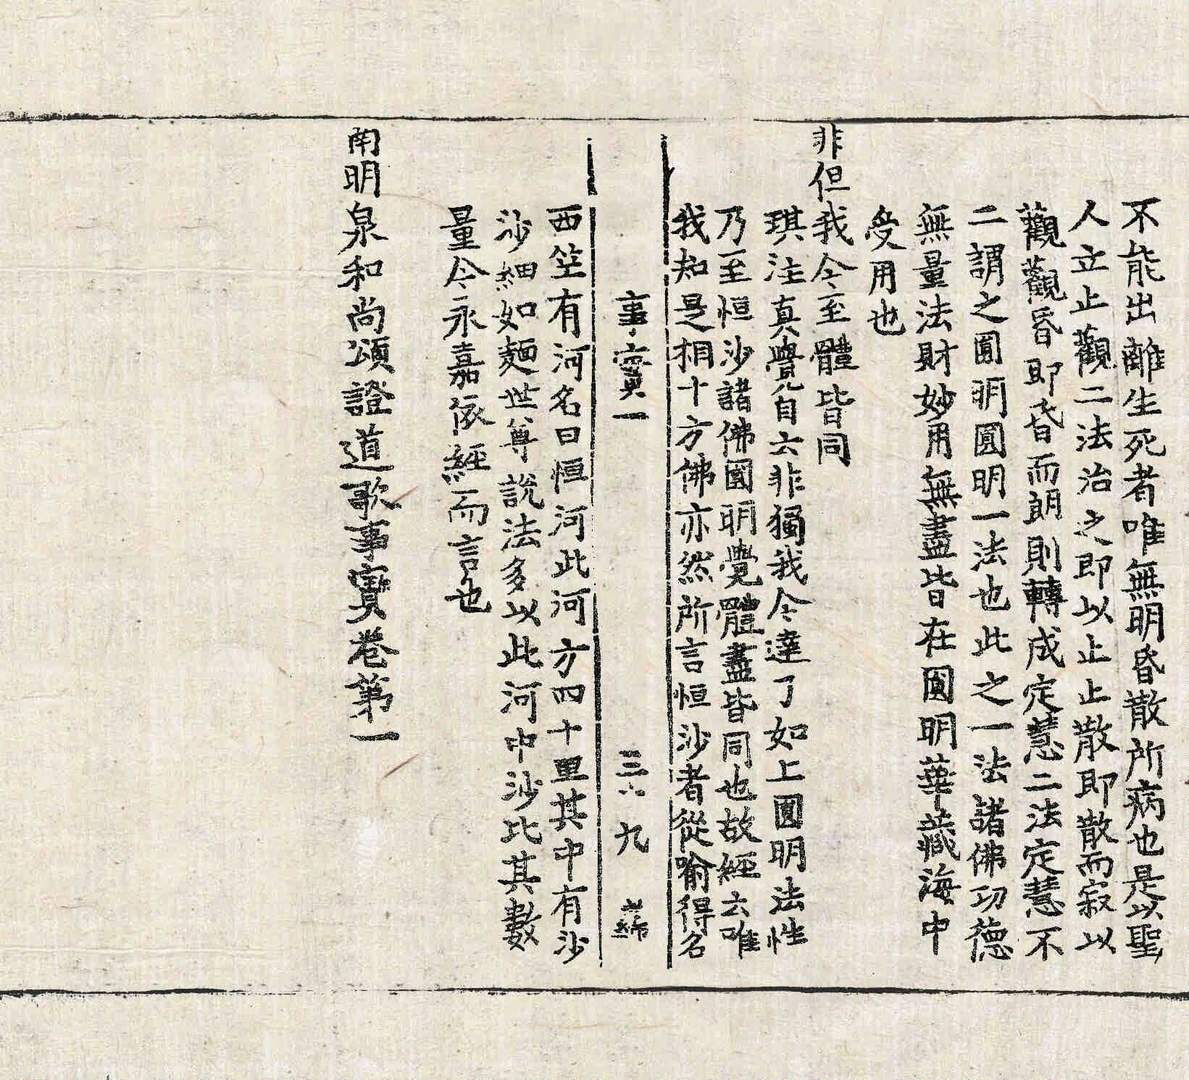 不能出離生死者唯無明昏散所病也是以聖
人立止觀二法治之即以止止散即散而寂以
觀觀昏即昏而朗則轉成定慧二法定慧不
二謂之圓明圓明一法也此之一法諸佛功德
無量法財妙用無盡皆在圓明華藏海中
受用也
非但我今至體皆同
琪注真覺自云非獨我今達了如上圓明法性
乃至恒沙諸佛圓明覺體盡皆同也故經云唯
我知是相十方佛亦然所言恒沙者從喻得名
事實一 三六 九
西竺有河名曰恒河此河方四十里其中有沙
沙細如麵世尊說法多以此河中沙比其數
量今永嘉依經而言也
南明泉和尚頌證道歌事實卷第一